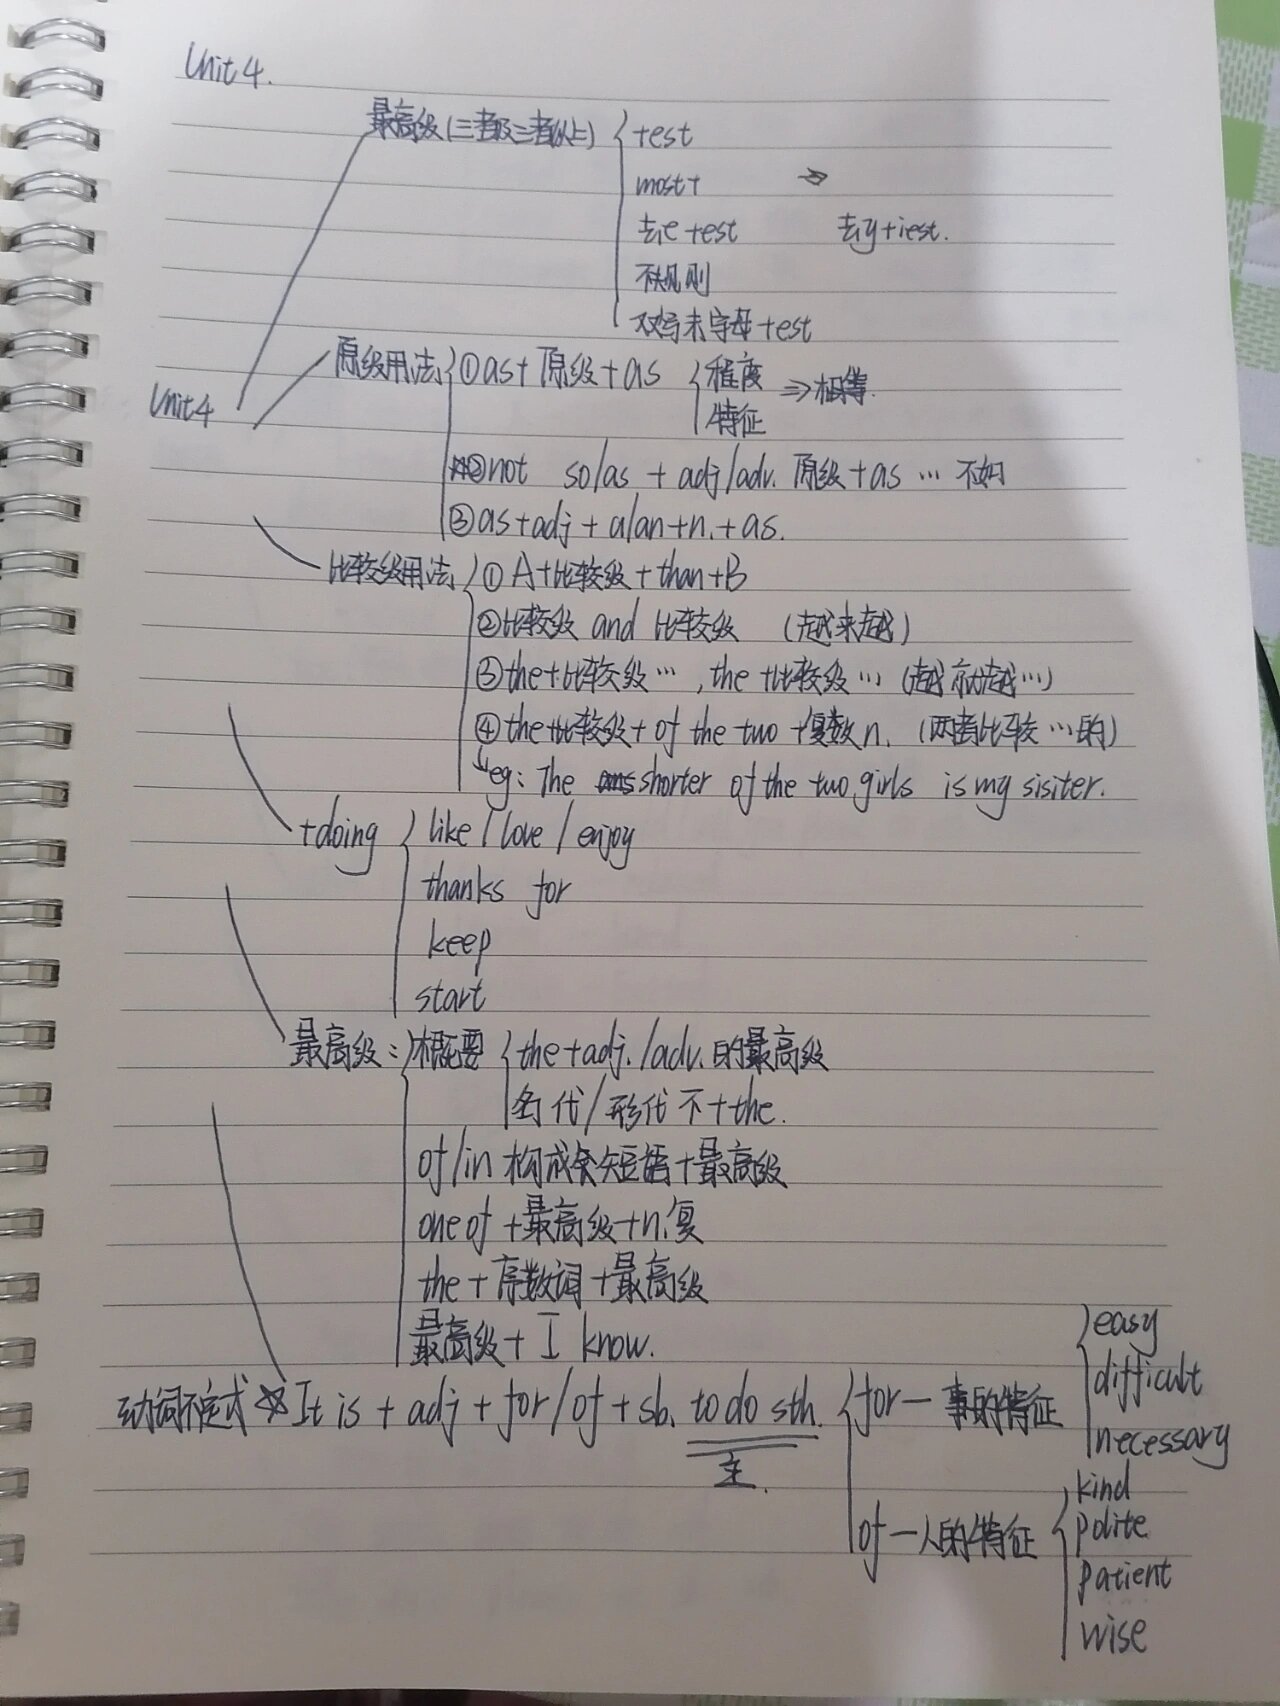 Unit 4.
最高级(三者及三者以上) +est
most+
去e +est 去y+iest.
不规则
双写末字母+est
Unit4
原级用法 ①as+原级+as 程度 ⇒相等.
特征
②not so/as + adj/adv. 原级+as … 不如
③as+adj+a/an+n.+as.
比较级用法 ①A+比较级+than+B
②比较级 and 比较级 (越来越)
③the+比较级…, the+比较级… (越就越…)
④the+比较级+ of the two +复数n. (两者比较…的)
eg: The shorter of the two girls is my sisiter.
+doing like/love/enjoy
thanks for
keep
start
最高级: 概要 the+adj./adv.的最高级
名代/形代不+the.
of/in 构成介短语+最高级
one of +最高级+n.复
the+序数词+最高级
最高级+ I know.
动词不定式 ☆It is + adj + for/of + sb. to do sth. for—事的特征 easy
difficult
necessary
主.
of—人的特征 kind
polite
patient
wise